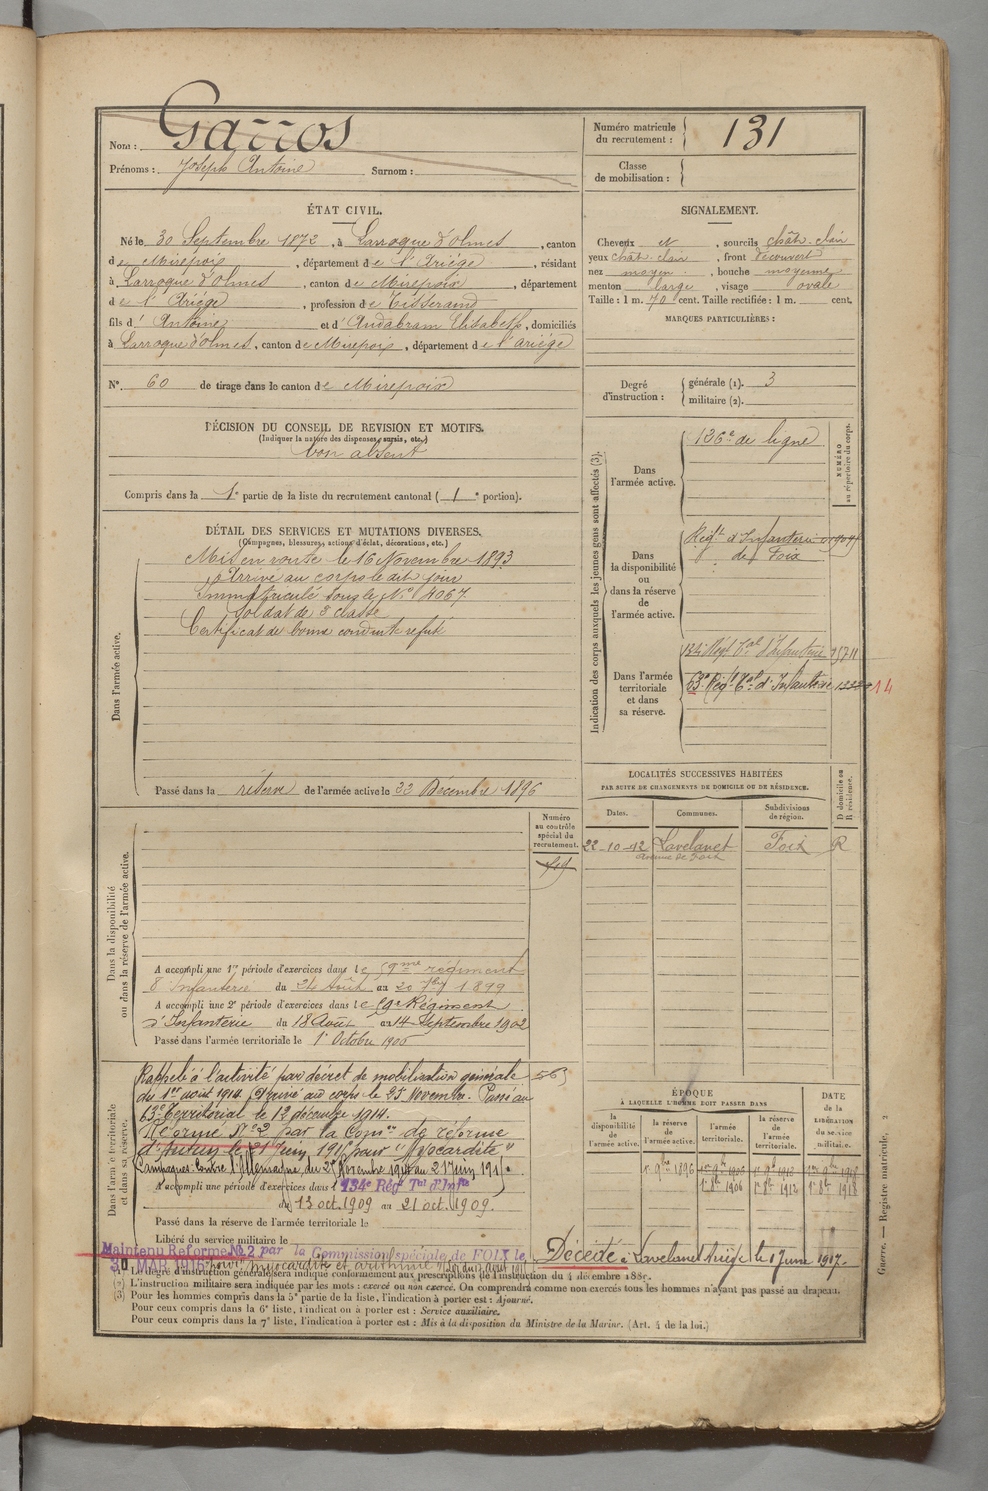 Nom : Garros
Prénoms : Joseph Antoine Surnom :
Numéro matricule du recrutement : 131
Classe de mobilisation :
ÉTAT CIVIL.
Né le 30 Septembre 1872, à Larroque d'olmes, canton
de Mirepoix, département de l'Ariége, résidant
à Larroque d'olmes, canton de Mirepoix, département
de l'Ariége, profession de Tisserand
fils d' Antoine et d' Andabram Elisabeth, domiciliés
à Larroque d'olmes, canton de Mirepoix, département de l'ariége
N° 60 de tirage dans le canton de Mirepoix
SIGNALEMENT.
Cheveux et, sourcils chât. clair
yeux chât. clair, front découvert
nez moyen, bouche moyenne
menton large, visage ovale
Taille : 1 m. 70 cent. Taille rectifiée : 1 m. cent.
MARQUES PARTICULIÈRES :
Degré d'instruction : générale (1). 3
militaire (2).
DÉCISION DU CONSEIL DE REVISION ET MOTIFS.
(Indiquer la nature des dispenses, sursis, etc.)
bon absent
Compris dans la 1e partie de la liste du recrutement cantonal ( 1 e portion).
DÉTAIL DES SERVICES ET MUTATIONS DIVERSES.
(Campagnes, blessures, actions d'éclat, décorations, etc.)
Dans l'armée active.
Mis en route le 16 Novembre 1893
Arrivé au corps le dit jour
Immatriculé sous le N° 4067
Soldat de 2e classe
Certificat de bonne conduite refusé
Passé dans la réserve de l'armée active le Décembre 1896
Indication des corps auxquels les jeunes gens sont affectés (3).
NUMÉRO au répertoire du corps.
Dans l'armée active.
126e de ligne
Dans la disponibilité ou dans la réserve de l'armée active.
Régt d'Infanterie
de Foix
Dans l'armée territoriale et dans sa réserve.
134e Régt Tal d'Infanterie 15711
63e Régt Tal d'Infanterie
14
LOCALITÉS SUCCESSIVES HABITÉES
PAR SUITE DE CHANGEMENTS DE DOMICILE OU DE RÉSIDENCE.
Dates. Communes. Subdivisions de région. D domicile ou R résidence.
22-10-12 Lavelanet Foix R
Avenue de Foix
Numéro au contrôle spécial du recrutement.
Dans la disponibilité ou dans la réserve de l'armée active.
A accompli une 1re période d'exercices dans le 59me régiment
d'Infanterie du 24 Août au 20 7bre 1899
A accompli une 2e période d'exercices dans le 59e Régiment
d'Infanterie du 18 Août au 14 Septembre 1902
Passé dans l'armée territoriale le 1er Octobre 1906
Dans l'armée territoriale et dans sa réserve.
Rappelé à l'activité par décret de mobilisation générale
du 1er août 1914. Arrivé au corps le 25 Novembre. Passé au
63e Territorial le 12 décembre 1914.
Réformé N° 2 par la Comon de réforme
d'Autun le 21 Juin 1915 pour "Myocardite"
Campagnes: Contre l'Allemagne, du 25 Novembre 1914 au 21 Juin 1915.
A accompli une période d'exercices dans l 134e Régt Tal d'Infie
du 13 oct. 1909 au 21 oct. 1909.
Passé dans la réserve de l'armée territoriale le
Libéré du service militaire le
Maintenu Réforme N° 2 par la Commission spéciale de FOIX le
30 MAR 1916 pour myocardite et arithmie
ÉPOQUE À LAQUELLE L'HOMME DOIT PASSER DANS
la disponibilité de l'armée active. la réserve de l'armée active. l'armée territoriale. la réserve de l'armée territoriale.
DATE de la LIBÉRATION du service militaire.
1er 9bre 1896 1er 9bre 1906 1er 9bre 1912 1er 9bre 1918
1er 8bre 1906 1er 8bre 1912 1er 8bre 1918
Décédé à Lavelanet Ariège le 1 Juin 1917.
(1) Le degré d'instruction générale sera indiqué conformément aux prescriptions de l'instruction du 4 décembre 1889.
(2) L'instruction militaire sera indiquée par les mots : exercé ou non exercé. On comprendra comme non exercés tous les hommes n'ayant pas passé au drapeau.
(3) Pour les hommes compris dans la 5e partie de la liste, l'indication à porter est : Ajourné.
Pour ceux compris dans la 6e liste, l'indication à porter est : Service auxiliaire.
Pour ceux compris dans la 7e liste, l'indication à porter est : Mis à la disposition du Ministre de la Marine. (Art. 4 de la loi.)
Guerre. — Registre matricule, 2